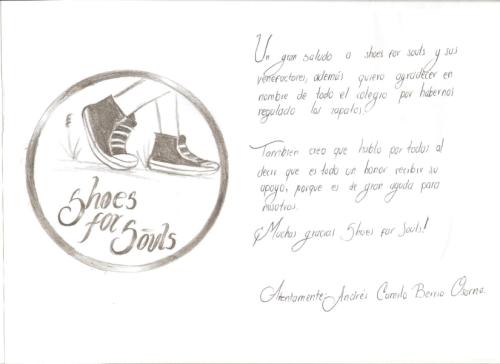 Shoes
for
Souls
Un gran saludo a shoes for souls y sus
venefactores, además quiero agradecer en
nombre de todo el colegio por habernos
regalado los zapatos.
Tambien creo que hablo por todos al
decir que es todo un honor recibir su
apoyo, porque es de gran ayuda para
nosotros.
¡Muchas gracias Shoes for Souls!
Atentamente: Andrés Camilo Berrio Osorno.